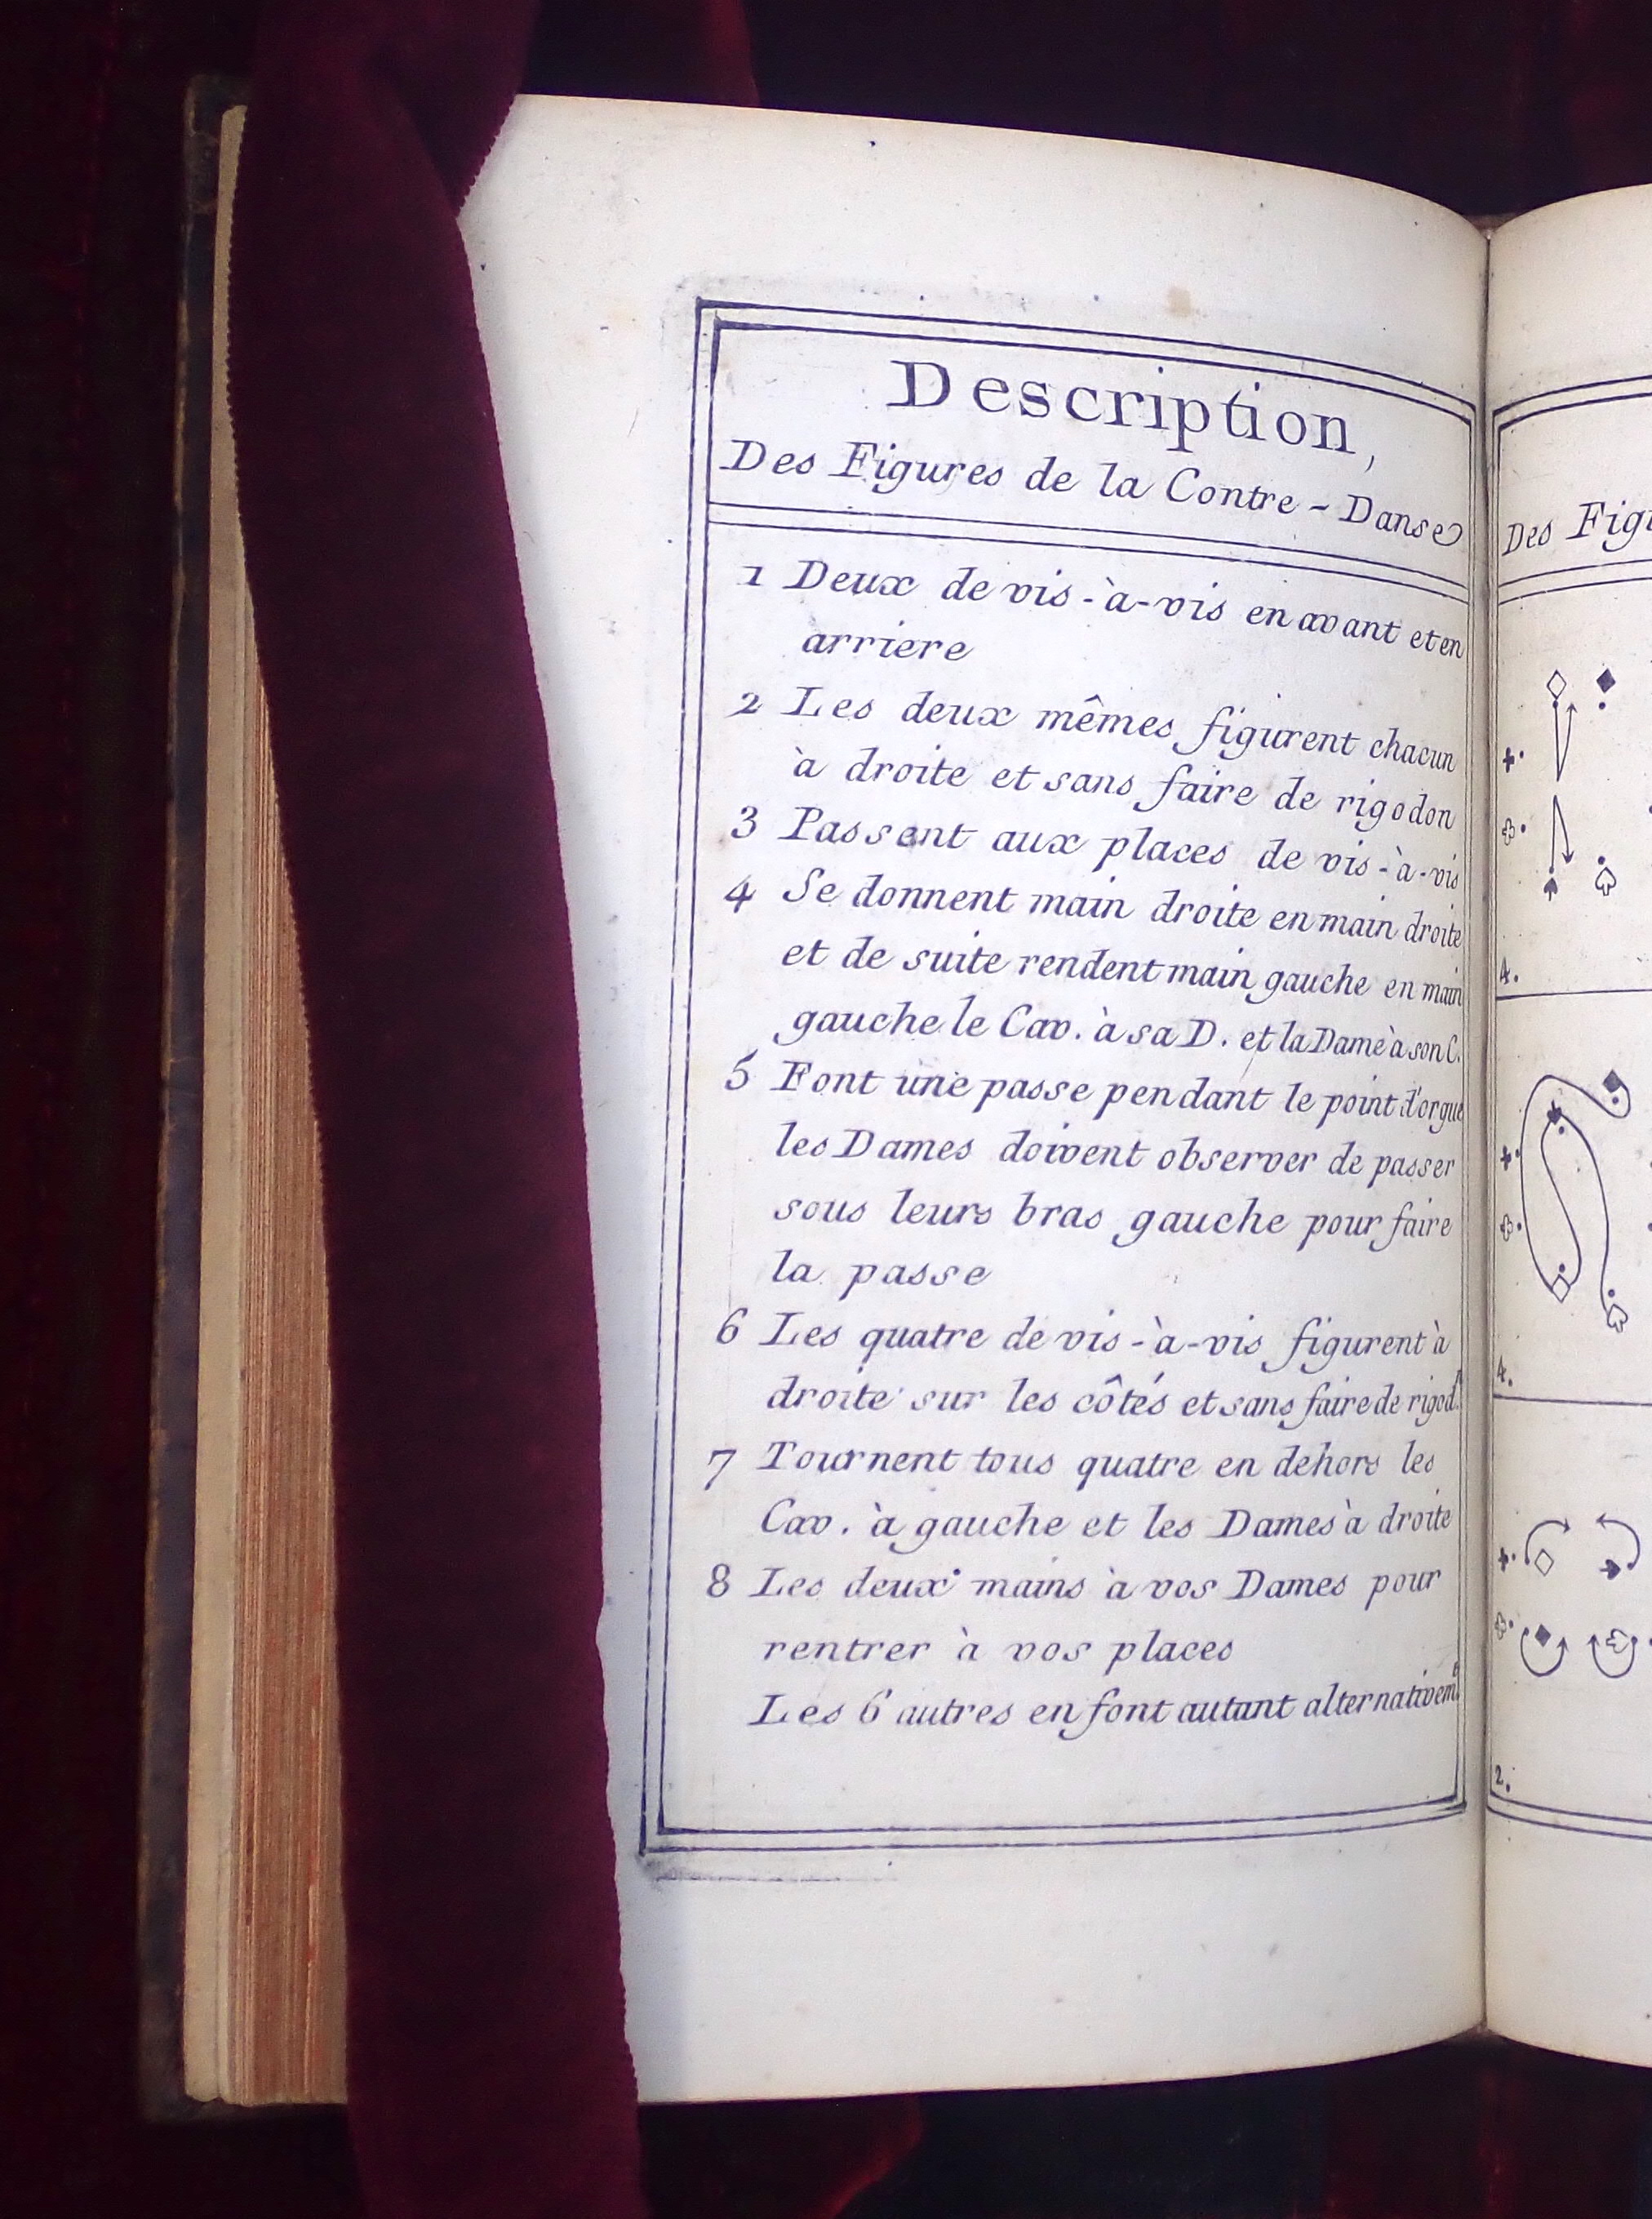 Description,
Des Figures de la Contre-Danse
1 Deux de vis-à-vis en avant et en
arriere
2 Les deux mêmes figurent chacun
à droite et sans faire de rigodon
3 Passent aux places de vis-à-vis
4 Se donnent main droite en main droite
et de suite rendent main gauche en main
gauche le Cav. à sa D. et la Dame à son C.
5 Font une passe pendant le point d'orgue
les Dames doivent observer de passer
sous leurs bras gauche pour faire
la passe
6 Les quatre de vis-à-vis figurent à
droite sur les côtés et sans faire de rigod.
7 Tournent tous quatre en dehors les
Cav. à gauche et les Dames à droite
8 Les deux mains à vos Dames pour
rentrer à vos places
Les 6 autres en font autant alternativem.t
Des Figu
4.
4.
2.